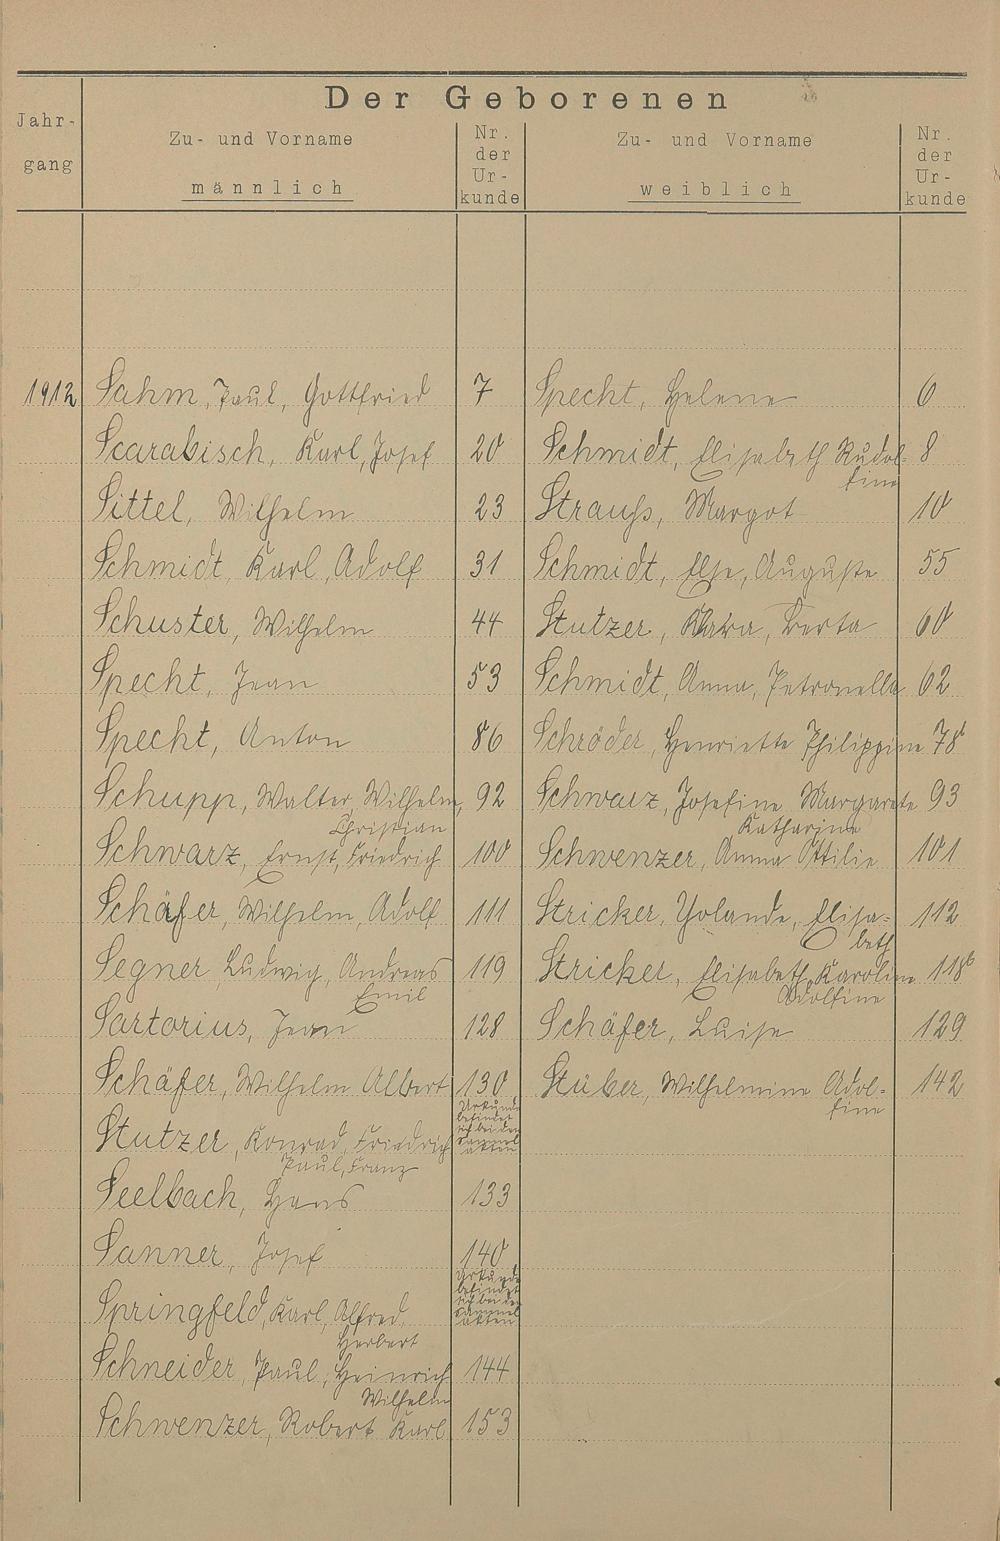 Der Geborenen
Jahr-
gang
Zu- und Vorname
männlich
Nr.
der
Ur-
kunde
Zu- und Vorname
weiblich
Nr.
der
Ur-
kunde
1912 Sahm, Paul, Gottfried 7 Specht, Helene 6
Scarabisch, Karl, Josef 20 Schmidt, Elisabeth Rudol- 8
fine
Sittel, Wilhelm 23 Strauß, Margot 10
Schmidt, Karl, Adolf 31 Schmidt, Else, Auguste 55
Schuster, Wilhelm 44 Stutzer, Klara, Berta 60
Specht, Jean 53 Schmidt, Anna, Petronella 62
Specht, Anton 86 Schröder, Henriette Philippine 78
Schupp, Walter, Wilhelm, 92 Schwarz, Josefine Margarete 93
Christian Katharine
Schwarz, Ernst, Friedrich 100 Schwenzer, Anna Ottilie 101
Schäfer, Wilhelm, Adolf 111 Stricker, Yolande, Elisa- 112
beth
Segner, Ludwig, Andreas 119 Stricker, Elisabeth, Karoline 118b
Emil Adolfine
Sartorius, Jean 128 Schäfer, Luise 129
Schäfer, Wilhelm Albert 130 Stüber, Wilhelmine Adol- 142
fine
Stutzer, Konrad, Friedrich Urkunde
befindet
sich bei den
Sammel
akten
Paul, Franz
Seelbach, Hans 133
Sanner, Josef 140
Springfeld, Karl, Alfred, Urkunde
befindet
sich bei den
Sammel
akten
Herbert
Schneider, Paul, Heinrich 144
Wilhelm
Schwenzer, Robert Karl 153